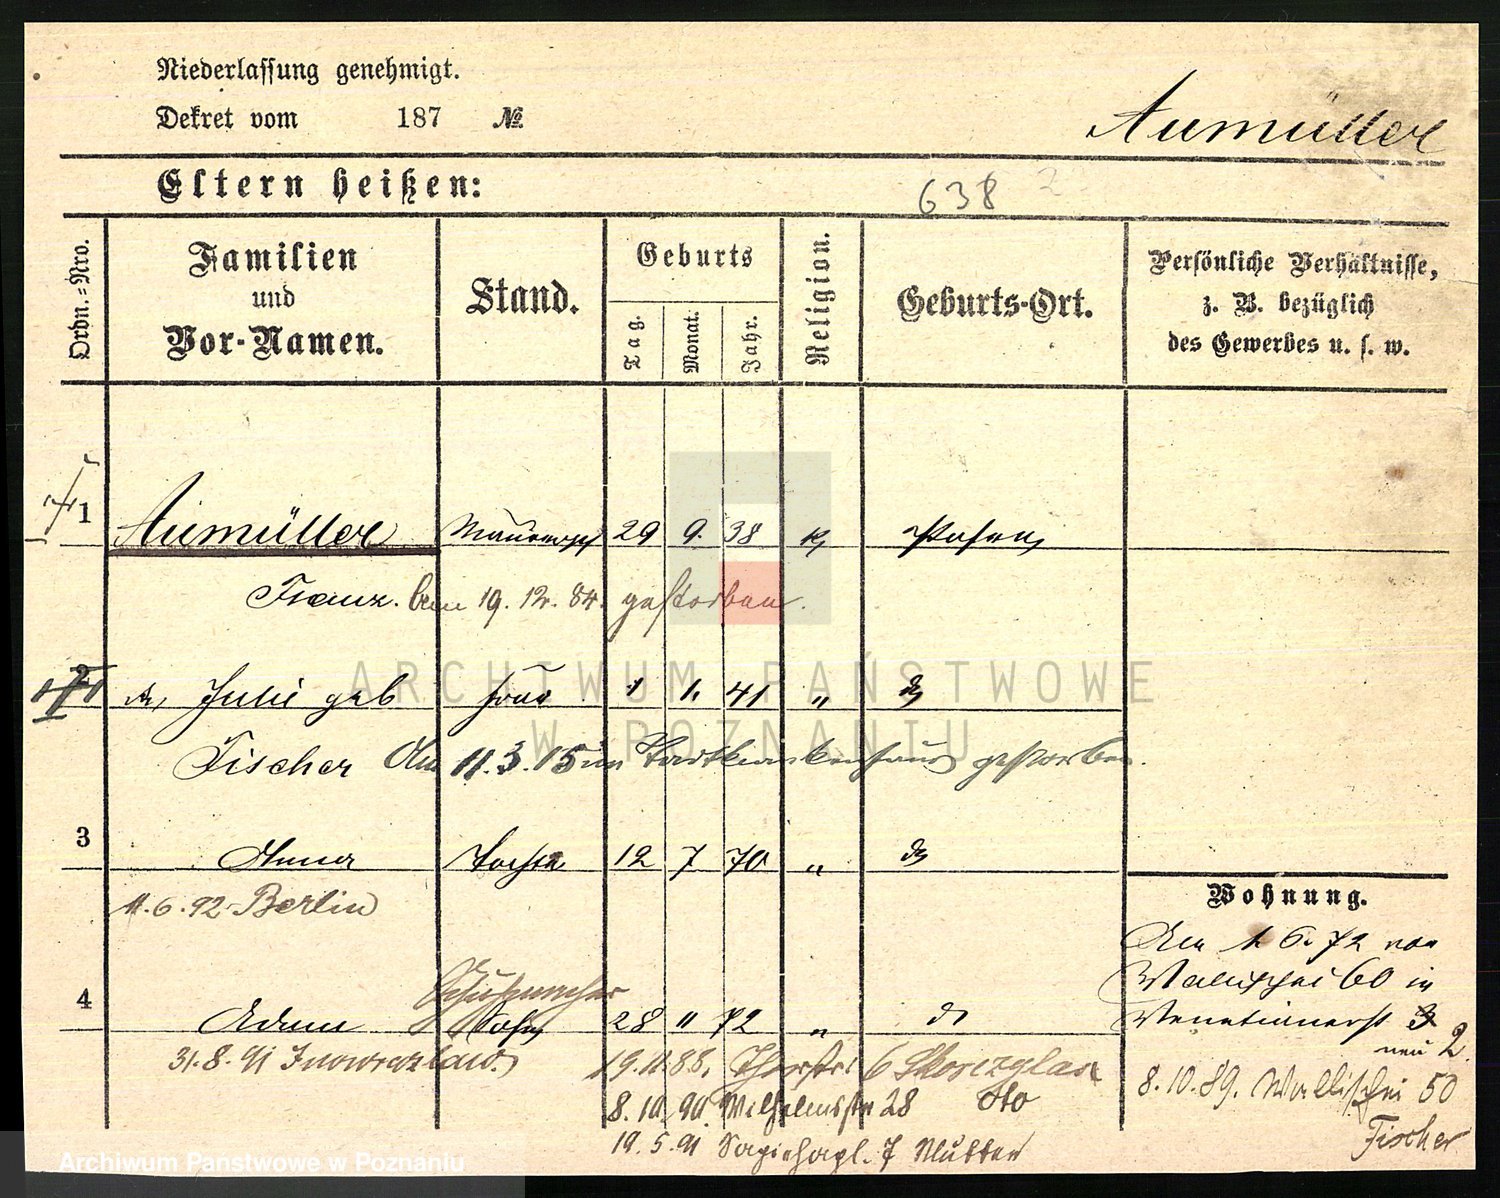 Niederlassung genehmigt.
Dekret vom 187 №
Aumüller
Eltern heißen:
638 2
Ordn.=Nro.
Familien und Vor-Namen.
Stand.
Geburts
Tag. Monat. Jahr.
Religion.
Geburts-Ort.
Persönliche Verhältnisse, z. B. bezüglich des Gewerbes u. s. w.
1 Aumüller 29 9. 38 k Posen
Franz. 19. 12. 84. gestorben.
do Julie geb Frau 1 1. 41 " do
Fischer Am 11.3.15 im Stadtkrankenhaus gestorben.
3 Anna Tochter 12 7 70 " do
11.6.92 Berlin
Wohnung.
Am 1. 6. 72 von
Wallischei 60 in
Venetianerst 3
neu 2
8.10.89. Wallischei 50
Fischer
Schuhmacher
4 Adam Sohn 28 " 72 " do
31.8.91 Inowrazlaw.
19.11.88. 6 Skorczylas
8.10.90. Wilhelmstr 28 dto
19.5.91 Sapiehapl. 7 Mutter
ARCHIWUM PAŃSTWOWE
W POZNANIU
Archiwum Panstwowe w Poznaniu